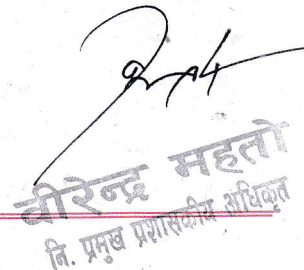 वीरेन्द्र महतो
नि. प्रमुख प्रशासकीय अधिकृत